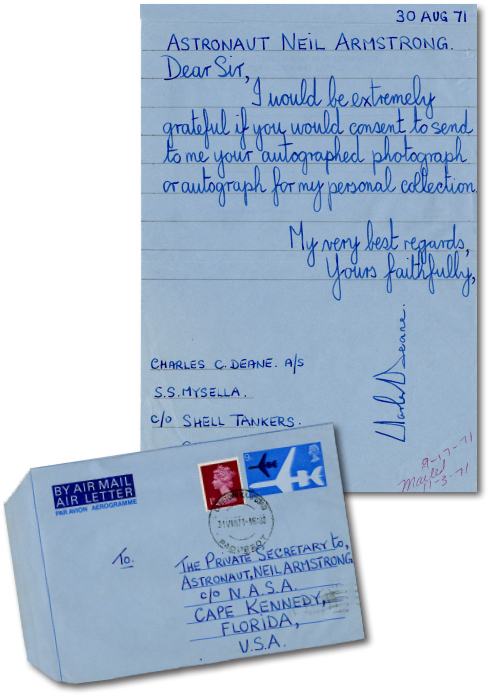 30 AUG 71
ASTRONAUT NEIL ARMSTRONG.
Dear Sir,
I would be extremely
grateful if you would consent to send
to me your autographed photograph
or autograph for my personal collection.
My very best regards,
Yours faithfully,
Charles Deane.
CHARLES C. DEANE. A/S
S.S. MYSELLA.
C/O SHELL TANKERS.
9-17-71
Mailed
11-3-71
BY AIR MAIL
AIR LETTER
PAR AVION AEROGRAMME
PAQUEBOT
To.
THE PRIVATE SECRETARY to,
ASTRONAUT, NEIL ARMSTRONG
c/o N.A.S.A.
CAPE KENNEDY,
FLORIDA,
U.S.A.